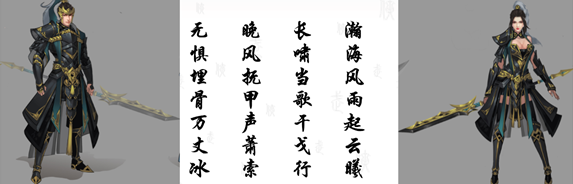 瀚海风雨起云曦
长啸当歌干戈行
晚风抚甲声萧索
无惧埋骨万丈冰